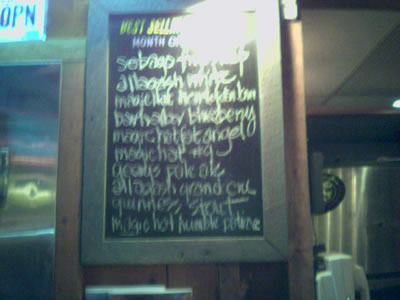 OPN
BEST SELLING
MONTH OF
sebago
allagash white
magic hat
bar harbor blueberry
magic hat fat angel
magic hat #9
geary's pale ale
allagash grand cru
guinness stout
magic hat humble patience